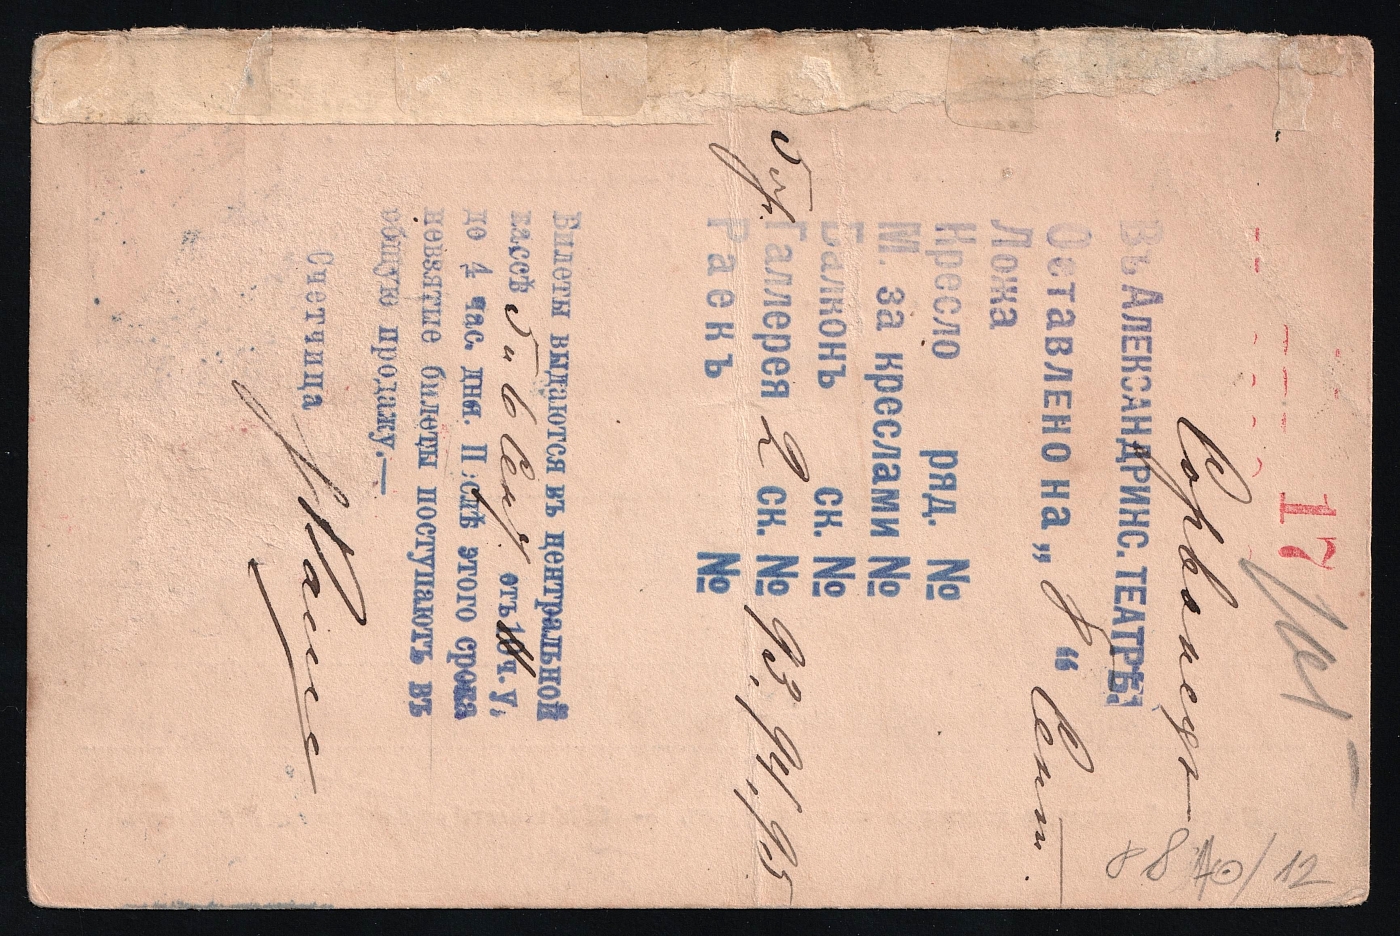 17
Въ АЛЕКСАНДРИНС. ТЕАТРѢ.
Оставлено на „8“ Сент.
Ложа
Кресло ряд. №
М. за креслами №
Балконъ ск. №
Галлерея 2 ск. № 93, 94, 95
Раекъ №
Билеты выдаются въ центральной
кассѣ 5 и 6 Сент. отъ ч. у,
до 4 час. дня. Послѣ этого срока
невзятые билеты поступаютъ въ
общую продажу.—
Счетчица
8870/12